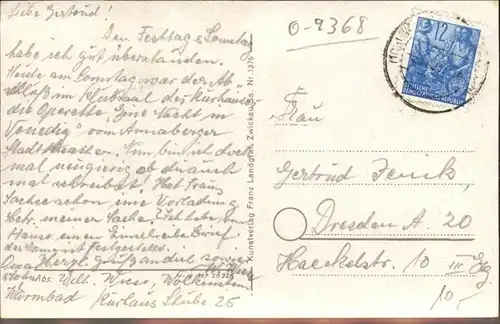 Liebe Gertrud!
Den Festtag & Sonntag
habe ich gut überstanden.
Heute am Sonntag war der Ab
schluß im Kultsaal des Kurhauses
die Operette. Eine Nacht in
Venedig" vom Annaberger
Stadttheater. Nun bin ich doch
mal neugierig ob du auch
mal schreibst. Hat Franz
Sachse schon eine Vorladung
betr. meiner Sache. Ich habe
Hause einen Einschreibe Brief
festgestellt.
Herzl. Grüße
Abs: Wolkenstein
Warmbad Kurhaus Stube 25
Kunstverlag Franz Landgraf, Zwickau/Sa. Nr. 1376
0-9368
12
DEUTSCHE
DEMOKRATISCHE REPUBLIK
Frau
Gertrud Jenik
Dresden A. 20
Haeckelstr. 10 III
10,-